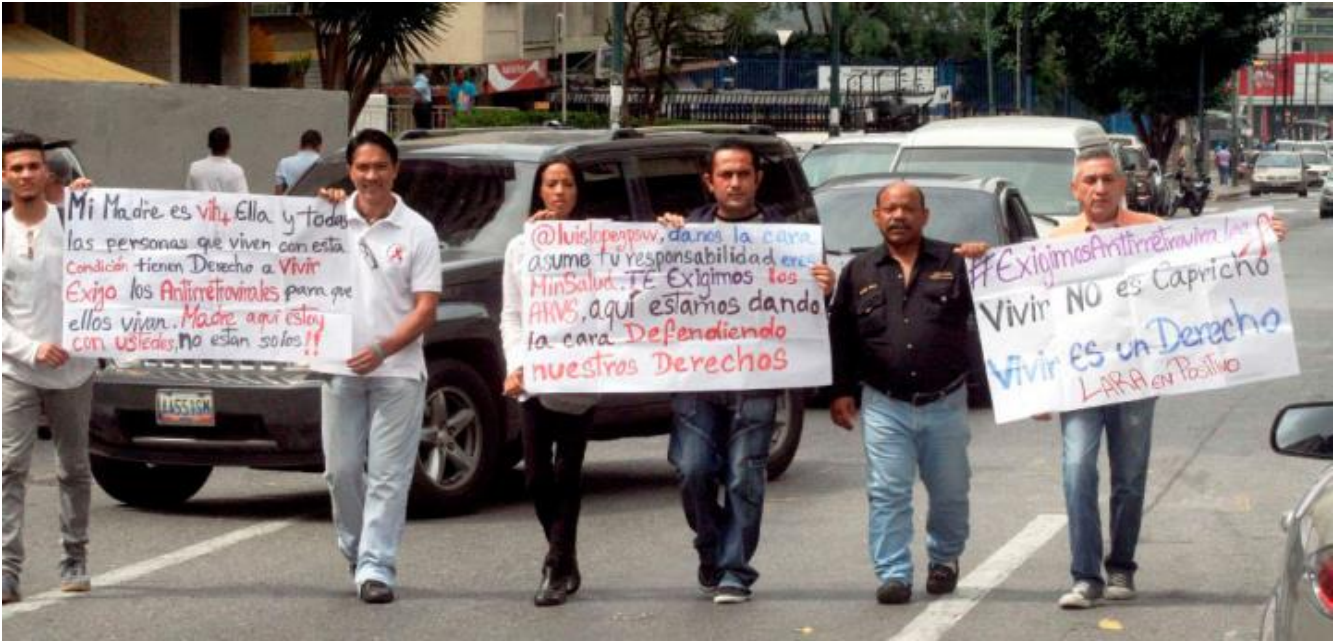 Mi Madre es vih+ Ella y todas
las personas que viven con esta
Condición tienen Derecho a Vivir
Exijo los Antirretrovirales para que
ellos vivan. Madre aquí estoy
con ustedes, no estan solos!!
@luislopezpsuv, danos la cara
asume tu responsabilidad eres
MinSalud. TE Exigimos los
ARVS, aquí estamos dando
la cara Defendiendo
nuestros Derechos
#ExigimosAntirretrovirales
Vivir NO es Capricho
Vivir es un Derecho
LARA en Positivo